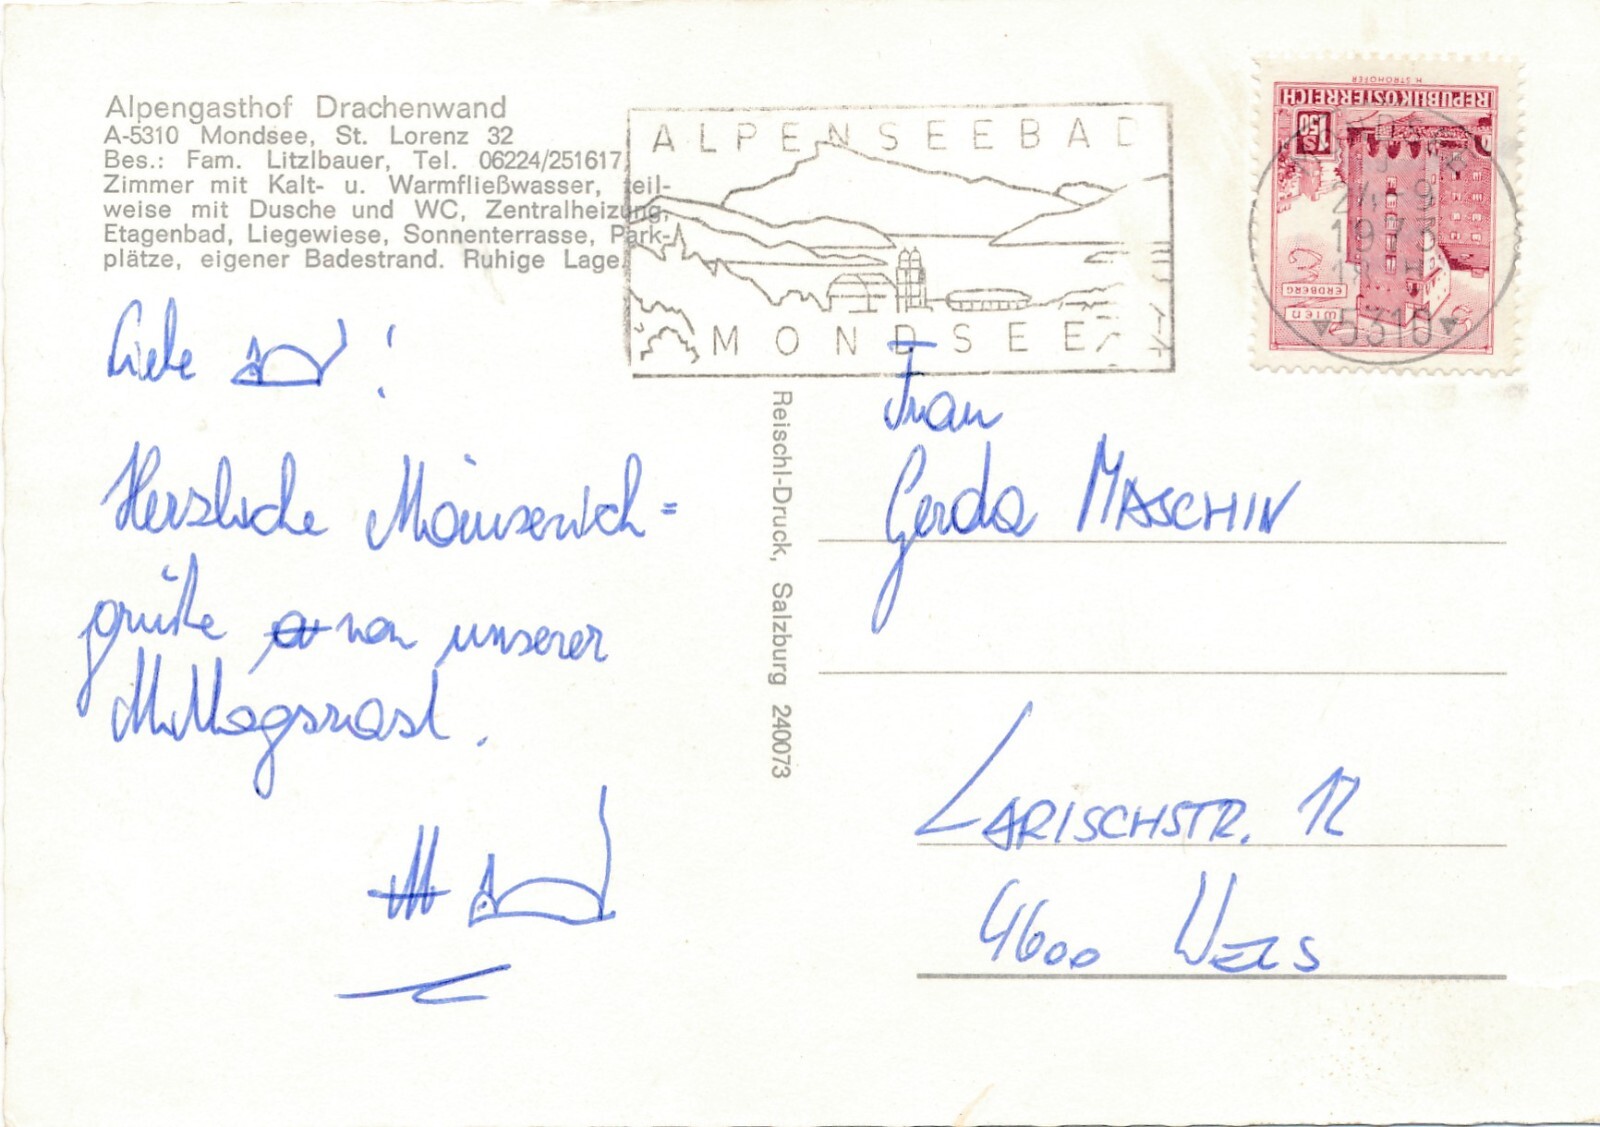 Alpengasthof Drachenwand
A-5310 Mondsee, St. Lorenz 32
Bes.: Fam. Litzlbauer, Tel. 06224/251617.
Zimmer mit Kalt- u. Warmfließwasser, teil-
weise mit Dusche und WC, Zentralheizung,
Etagenbad, Liegewiese, Sonnenterrasse, Park-
plätze, eigener Badestrand. Ruhige Lage.
ALPENSEEBAD
MONDSEE
H. STROHOFER
REPUBLIK ÖSTERREICH
S 1.50
WIEN
ERDBERG
24.-9
1973
5310
Liebe !
Herzliche Mäuserich=
grüße von unserer
Mittagsrast.
Reischl-Druck, Salzburg 240073
Frau
Gerda MASCHIN
LARISCHSTR. 12
4600 WELS